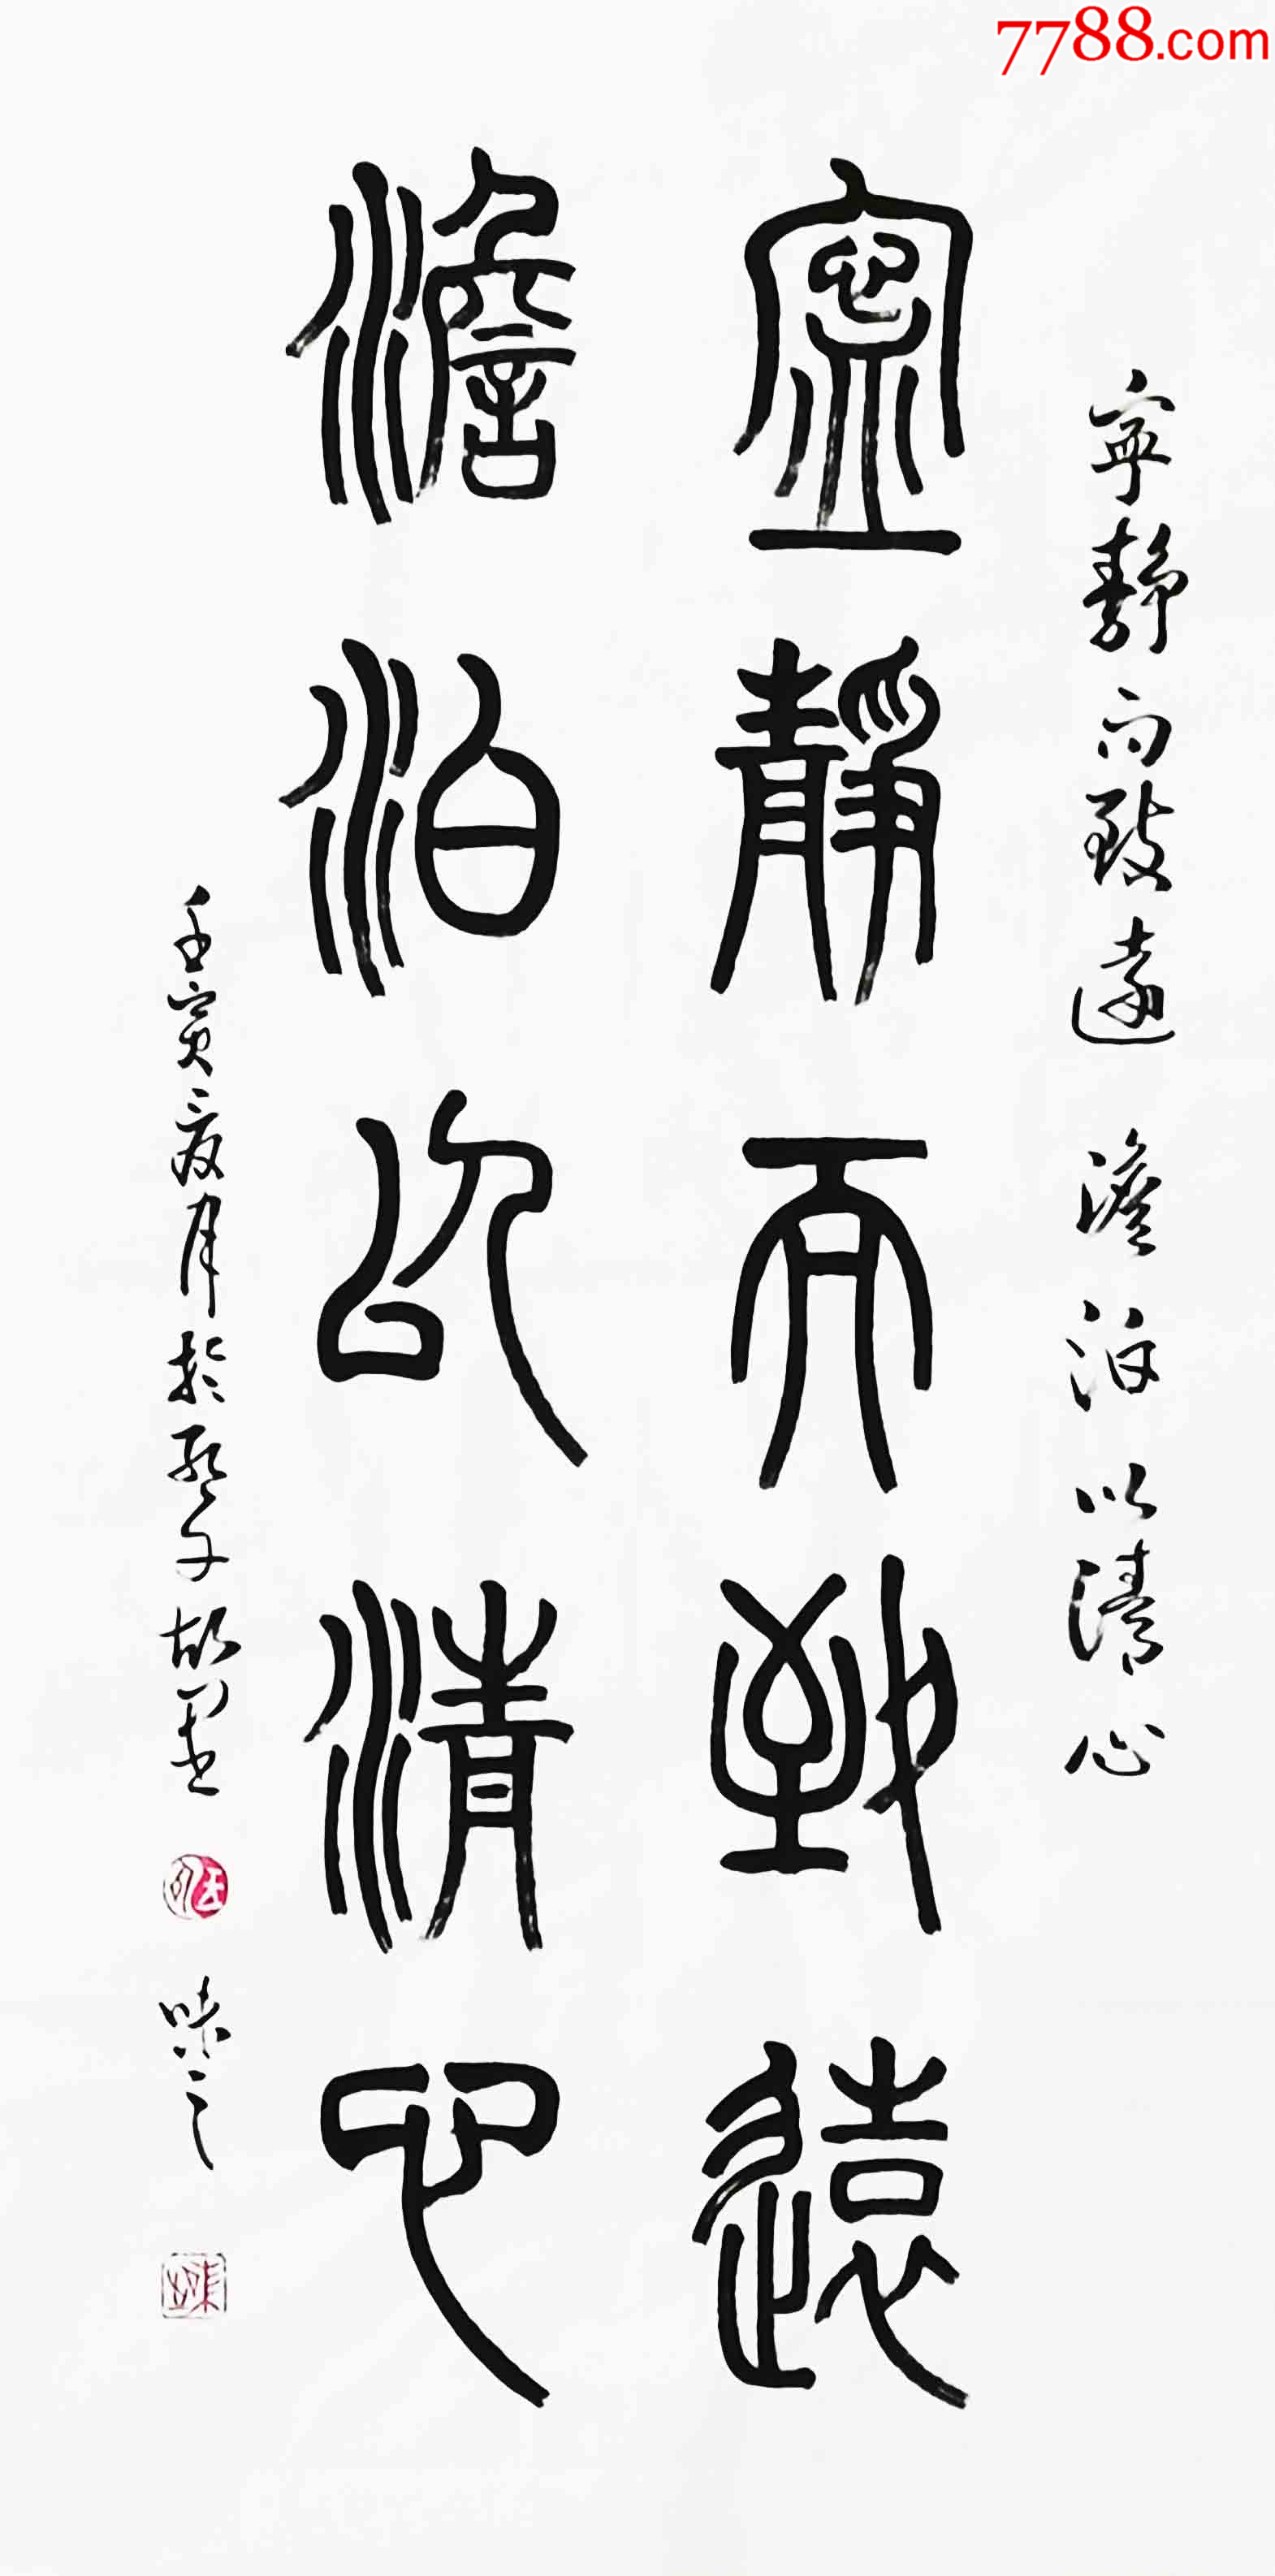 7788.com
寧靜而致遠 澹泊以清心
寧靜而致遠
澹泊以清心
壬寅夏月於
味之